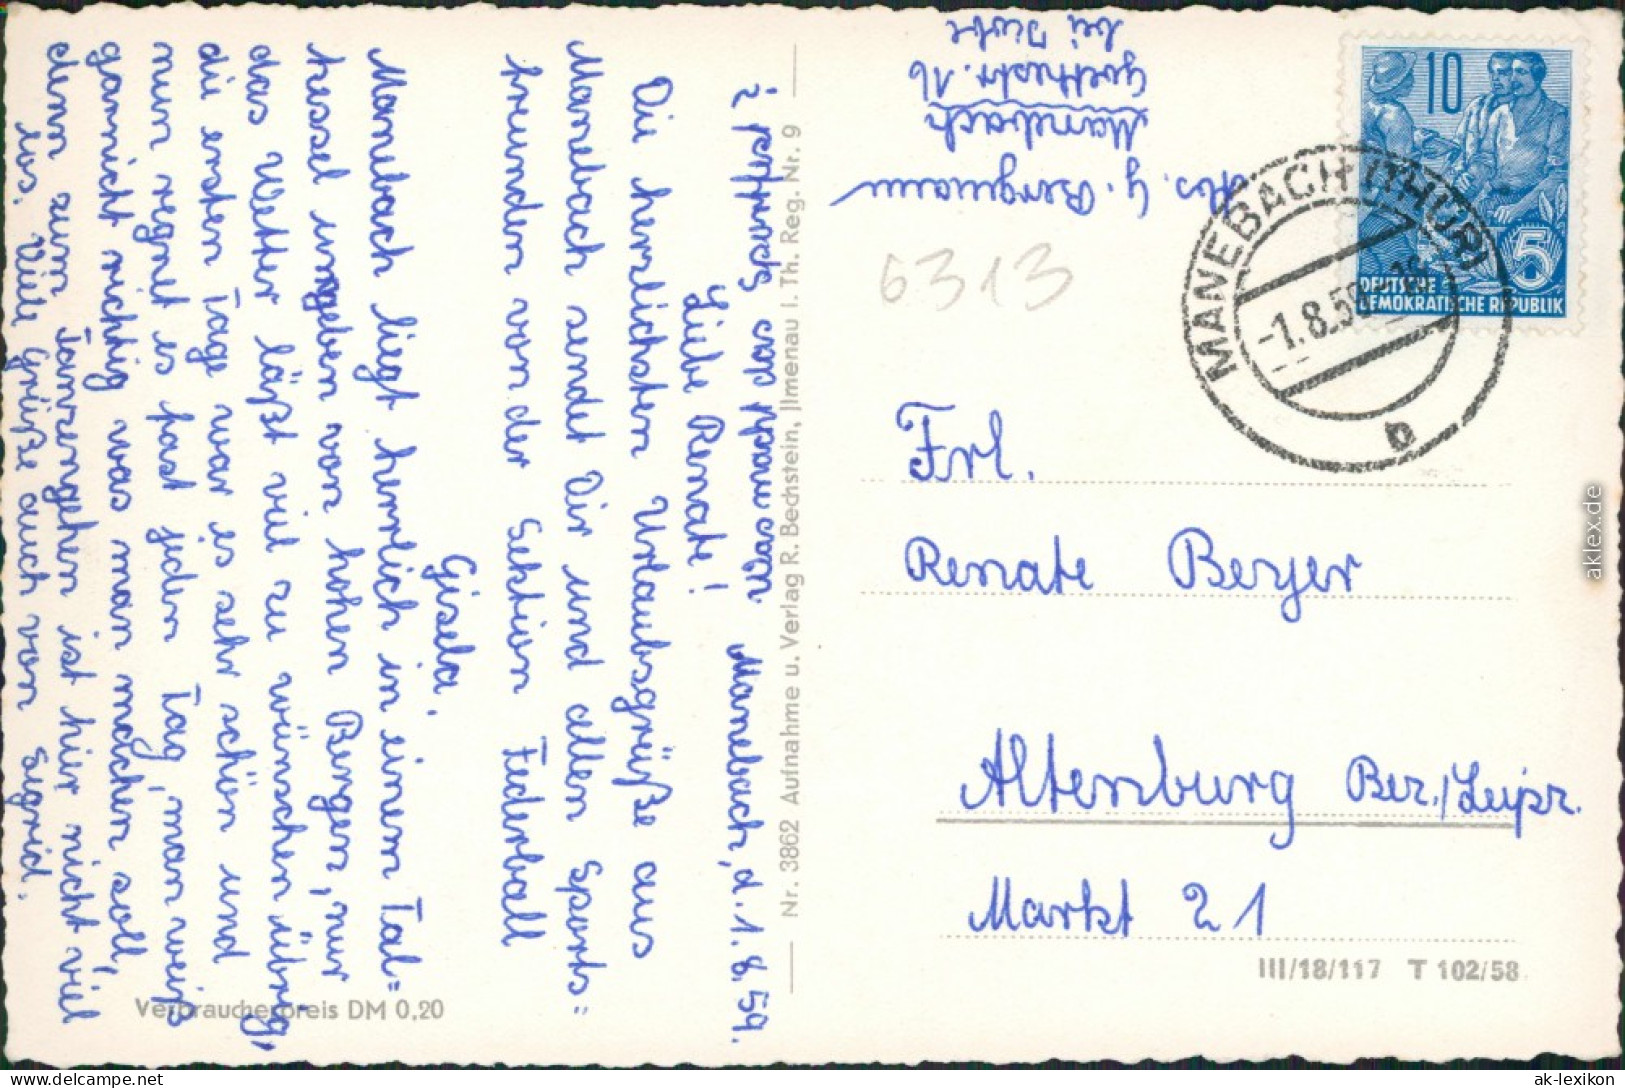 Manebach, d. 1.8.59.
Liebe Renate!
Die herzlichsten Urlaubsgrüße aus
Manebach sendet Dir und allen Sports=
freunden von der Sektion Federball
Gisela.
Manebach liegt herrlich in einem Tal=
kessel umgeben von hohen Bergen, nur
das Wetter läßt viel zu wünschen übrig,
die ersten Tage war es sehr schön und
nun regnet es fast jeden Tag, man weiß
garnicht richtig was man machen soll,
denn zum Tanzengehen ist hier nicht viel
los. Viele Grüße auch von Sigrid.
Verbraucherpreis DM 0,20
Nr. 3862 Aufnahme u. Verlag R. Bechstein, Jlmenau i. Th. Reg. Nr. 9
Abs. G. Bergmann
Manebach
Goethestr. 16
bei
10
5
DEUTSCHE
DEMOKRATISCHE REPUBLIK
MANEBACH (THÜR)
-1.8.59
b
6313
Frl.
Renate Beyer
Altenburg Bez./Leipz.
Markt 21
III/18/117 T 102/58
aklex.de
ak-lexikon